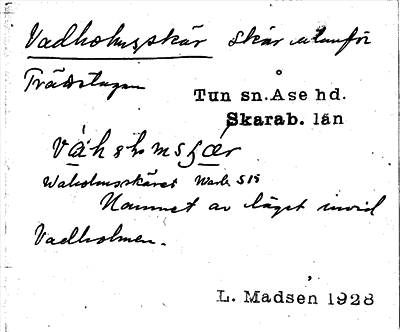 Vadholmsskär skär utanför
Trädstugan
Tun sn. Åse hd.
Skarab. län
Waholmsskäret Warb. S15
Namnet av läget invid
Vadholmen.
L. Madsen 1928